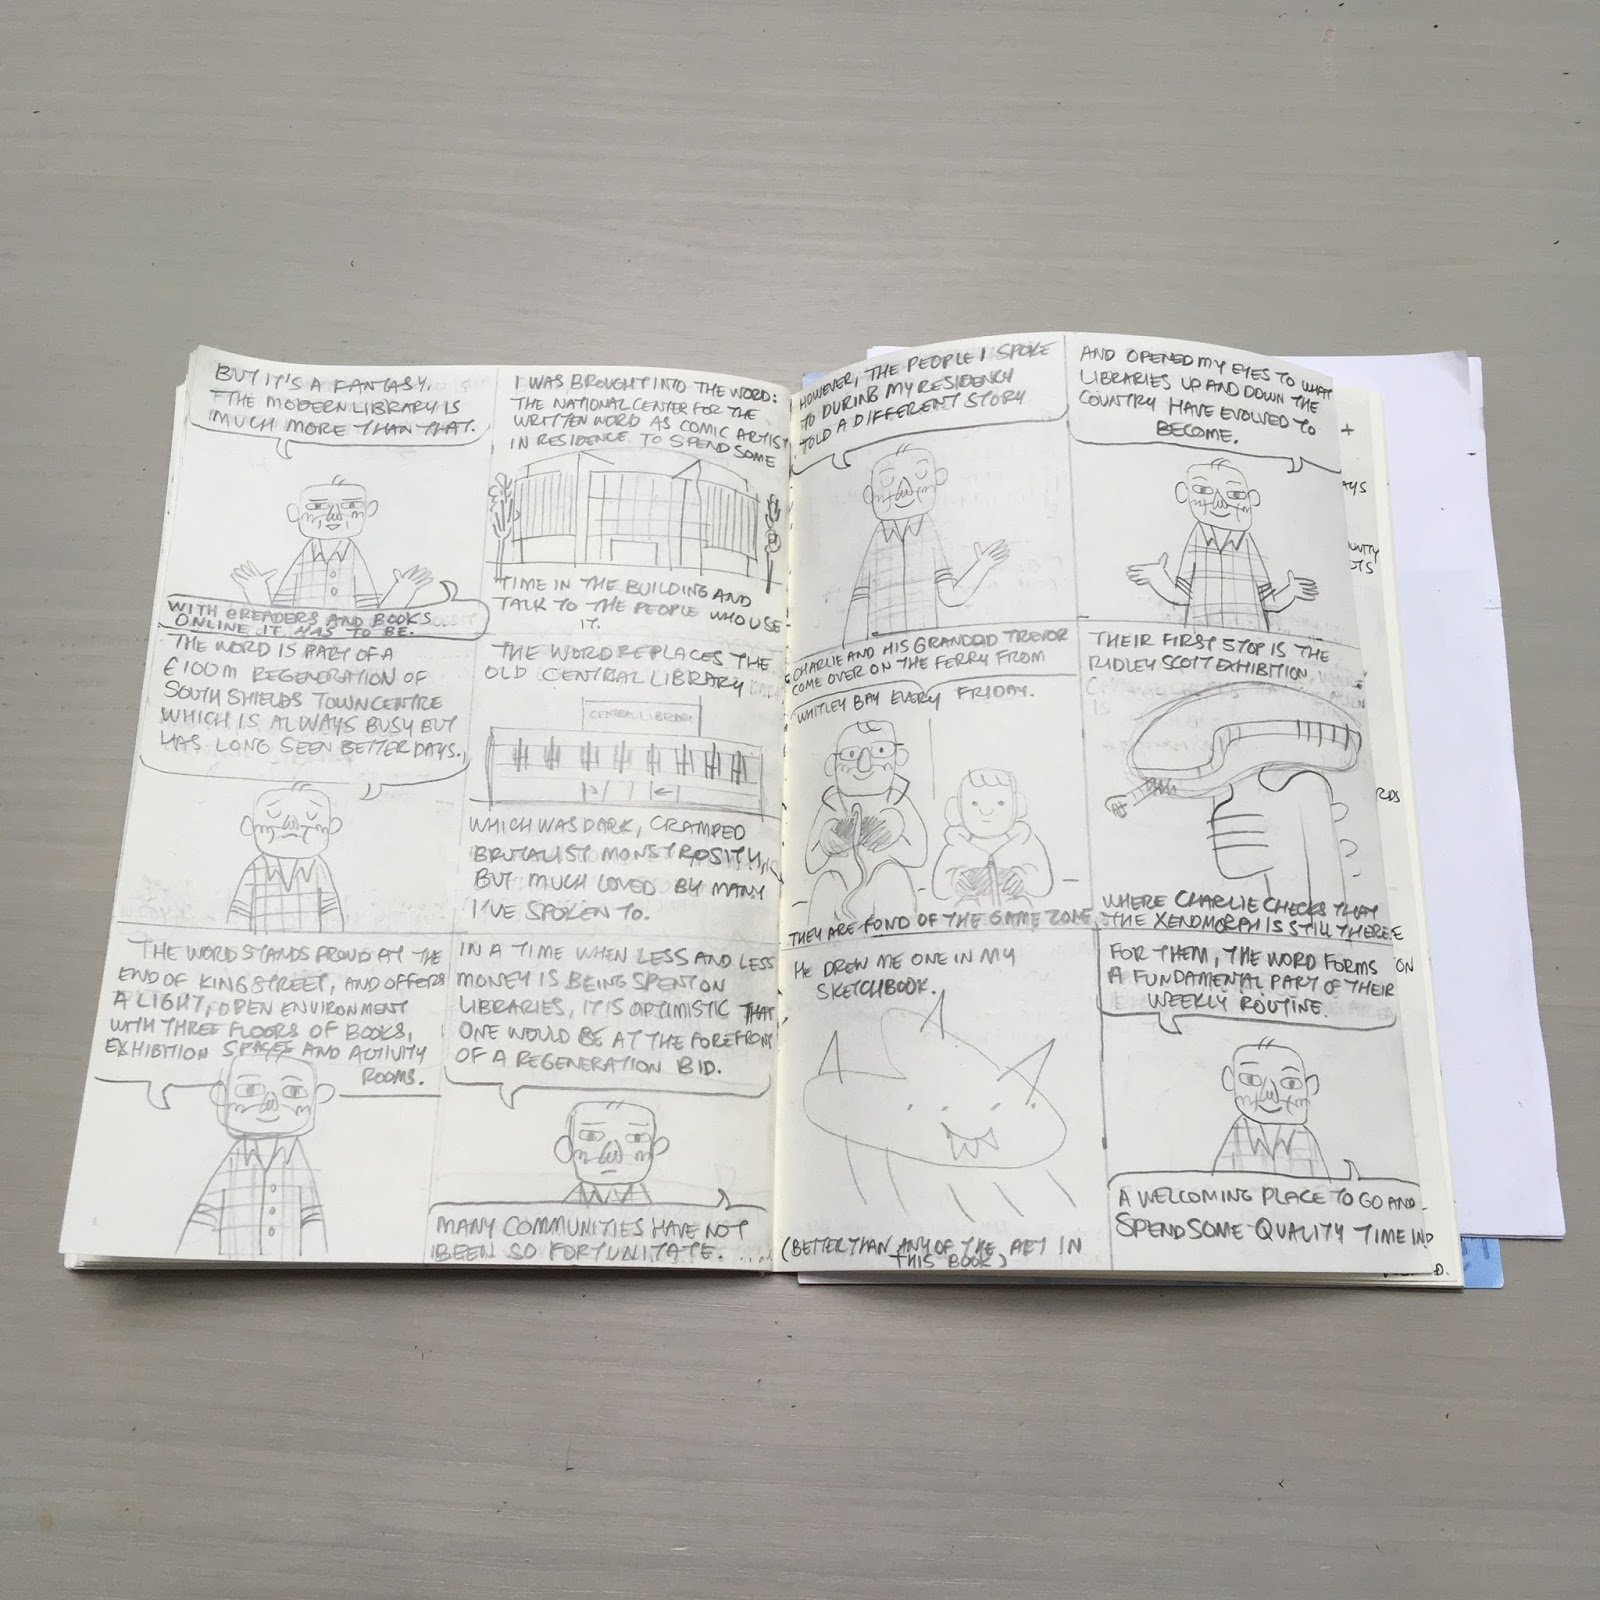 BUT IT'S A FANTASY.
THE MODERN LIBRARY IS
MUCH MORE THAN THAT.
WITH eREADERS AND BOOKS
ONLINE IT HAS TO BE.
I WAS BROUGHT INTO THE WORD:
THE NATIONAL CENTER FOR THE
WRITTEN WORD AS COMIC ARTIST
IN RESIDENCE. TO SPEND SOME
TIME IN THE BUILDING AND
TALK TO THE PEOPLE WHO USE
IT.
THE WORD IS PART OF A
£100m REGENERATION OF
SOUTH SHIELDS TOWN CENTRE
WHICH IS ALWAYS BUSY BUT
HAS LONG SEEN BETTER DAYS.
THE WORD REPLACES THE
OLD CENTRAL LIBRARY
CENTRAL LIBRARY
WHICH WAS DARK, CRAMPED
BRUTALIST MONSTROSITY,
BUT MUCH LOVED BY MANY
I'VE SPOKEN TO.
THE WORD STANDS PROUD AT THE
END OF KING STREET, AND OFFERS
A LIGHT, OPEN ENVIRONMENT
WITH THREE FLOORS OF BOOKS,
EXHIBITION SPACES AND ACTIVITY
ROOMS.
IN A TIME WHEN LESS AND LESS
MONEY IS BEING SPENT ON
LIBRARIES, IT IS OPTIMISTIC THAT
ONE WOULD BE AT THE FOREFRONT
OF A REGENERATION BID.
MANY COMMUNITIES HAVE NOT
BEEN SO FORTUNITATE.....
HOWEVER, THE PEOPLE I SPOKE
TO DURING MY RESIDENCY
TOLD A DIFFERENT STORY
AND OPENED MY EYES TO WHAT
LIBRARIES UP AND DOWN THE
COUNTRY HAVE EVOLVED TO
BECOME.
CHARLIE AND HIS GRANDAD TREVOR
COME OVER ON THE FERRY FROM
WHITLEY BAY EVERY FRIDAY.
THEY ARE FOND OF THE GAME ZONE
THEIR FIRST STOP IS THE
RIDLEY SCOTT EXHIBITION
WHERE CHARLIE CHECKS THAT
THE XENOMORPH IS STILL THERE
HE DREW ME ONE IN MY
SKETCHBOOK.
(BETTER THAN ANY OF THE ART IN
THIS BOOK)
FOR THEM, THE WORD FORMS
A FUNDAMENTAL PART OF THEIR
WEEKLY ROUTINE.
A WELCOMING PLACE TO GO AND
SPEND SOME QUALITY TIME IN